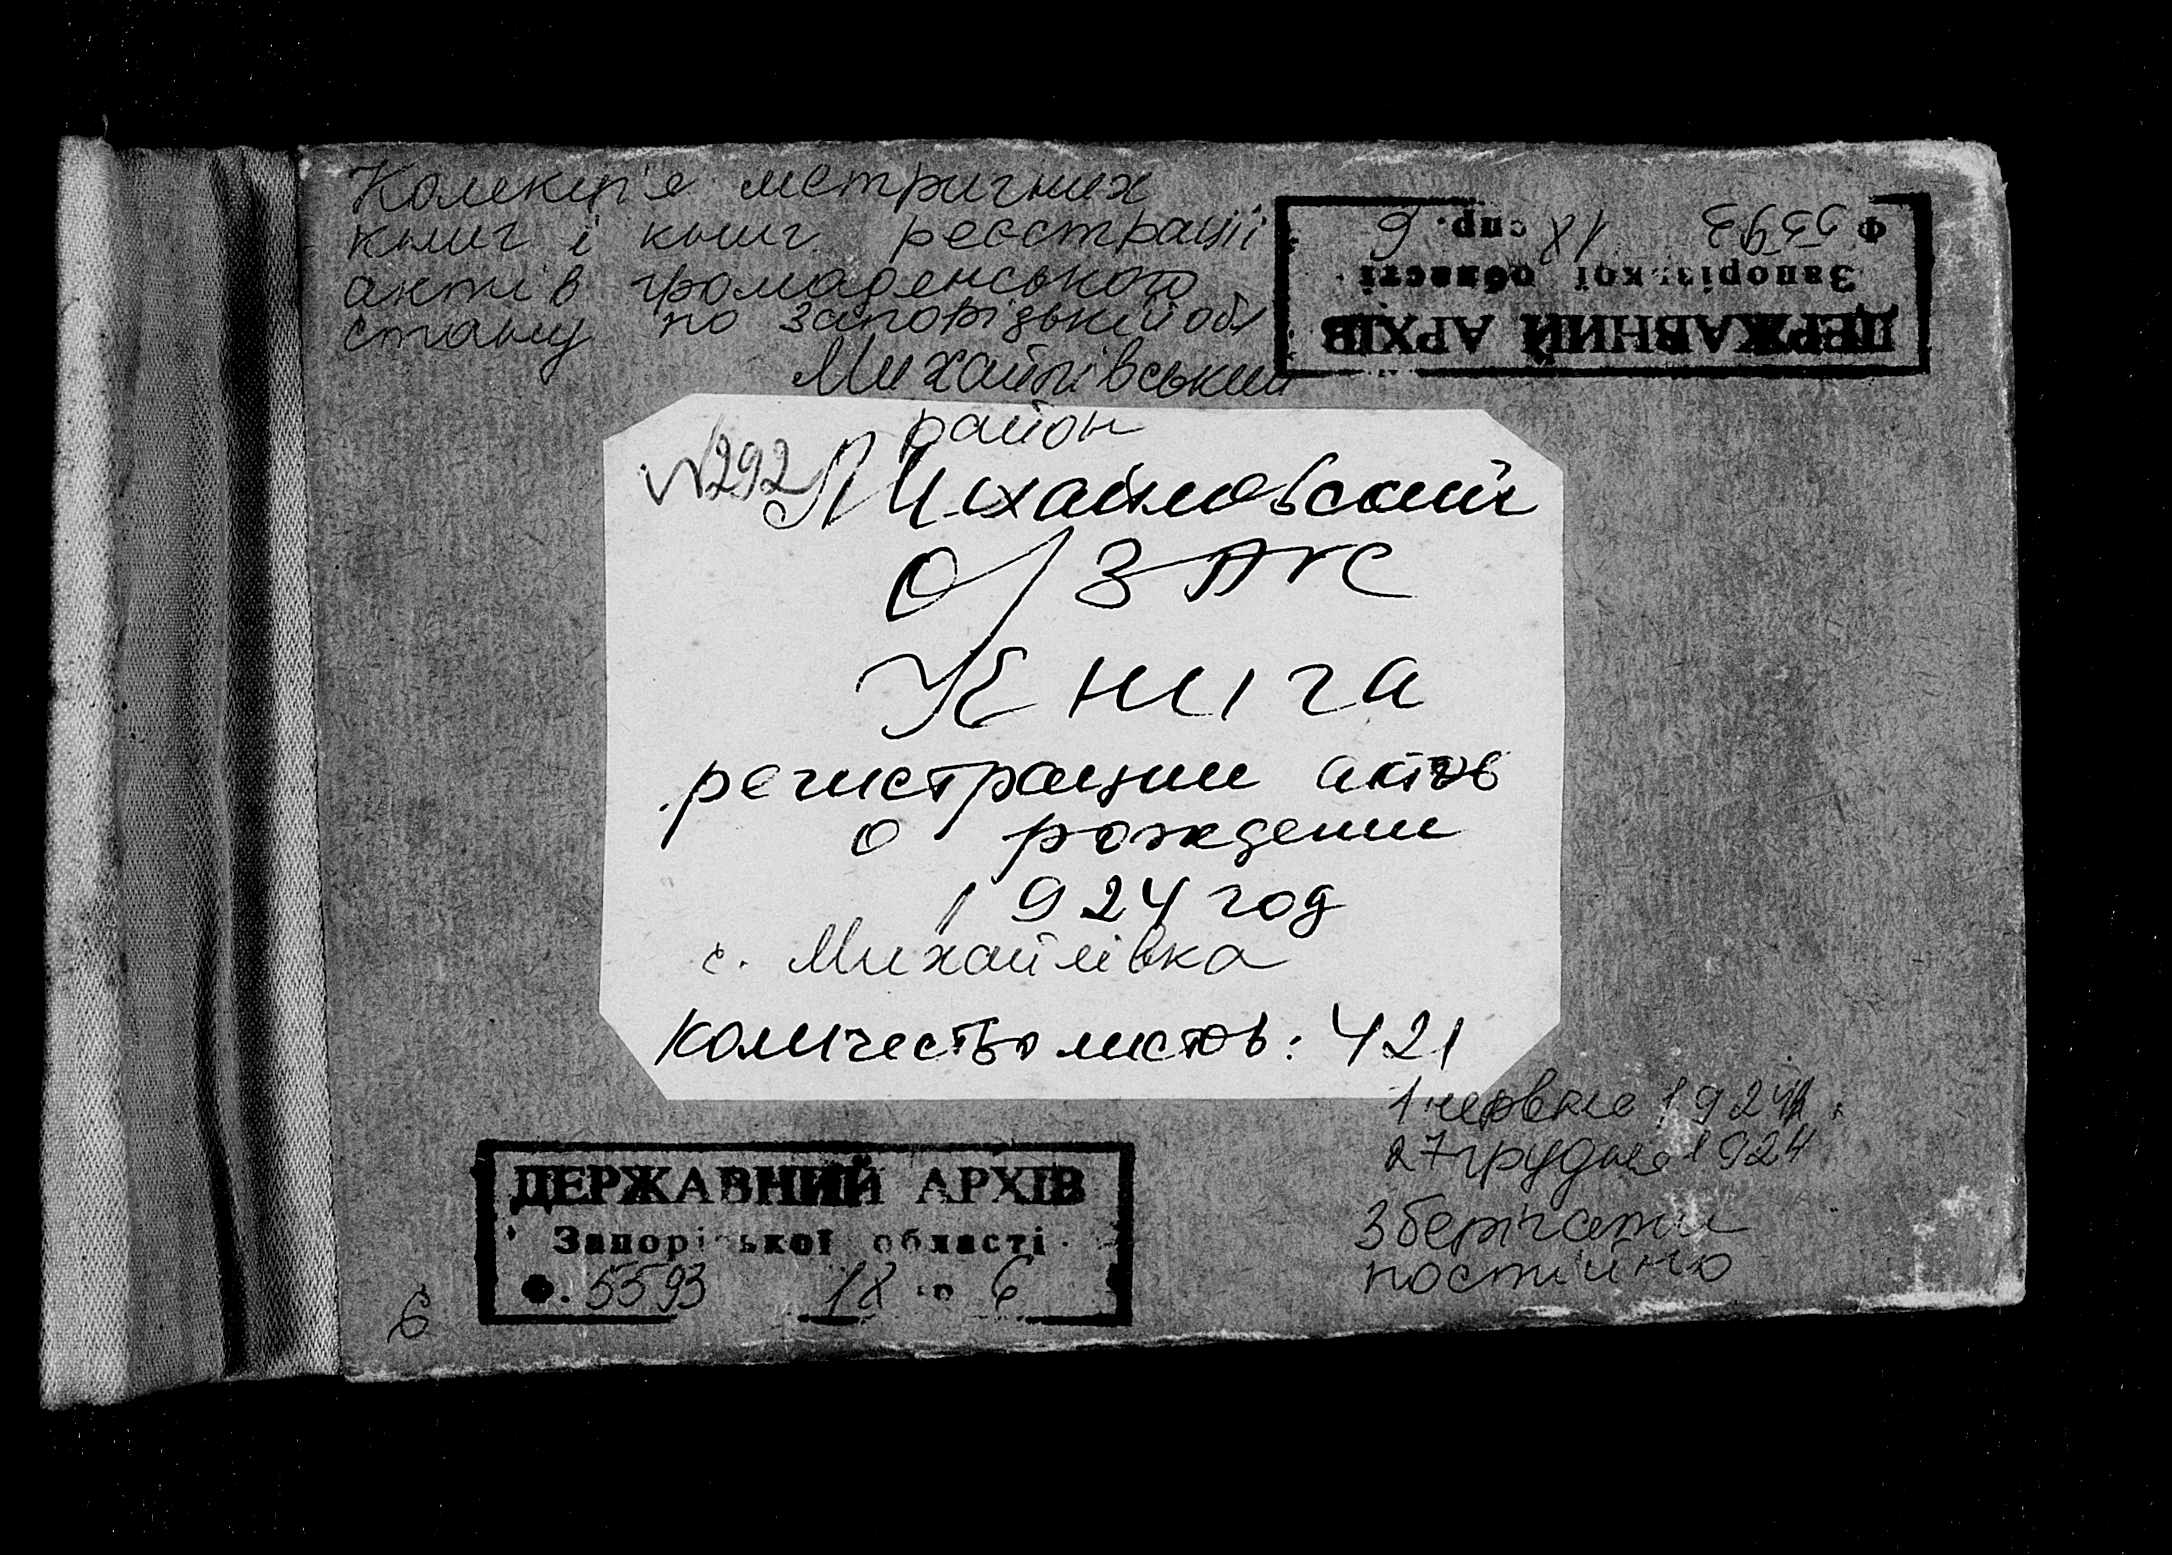 Колекція метричних
книг і книг реєстрації
актів громадянського
стану по Запорізькій обл
Михайлівський
район
ДЕРЖАВНИЙ АРХІВ
Запорізької області
Ф 5593 1Я спр. 6
№292 Михайловский
О/ЗАГС
Книга
регистрации актов
о рождении
1924 год
с. Михайлівка
количество листов: 421
1 червня 1924
27 грудня 1924
Зберігати
постійно
ДЕРЖАВНИЙ АРХІВ
Запорізької області
Ф. 5593 6
6